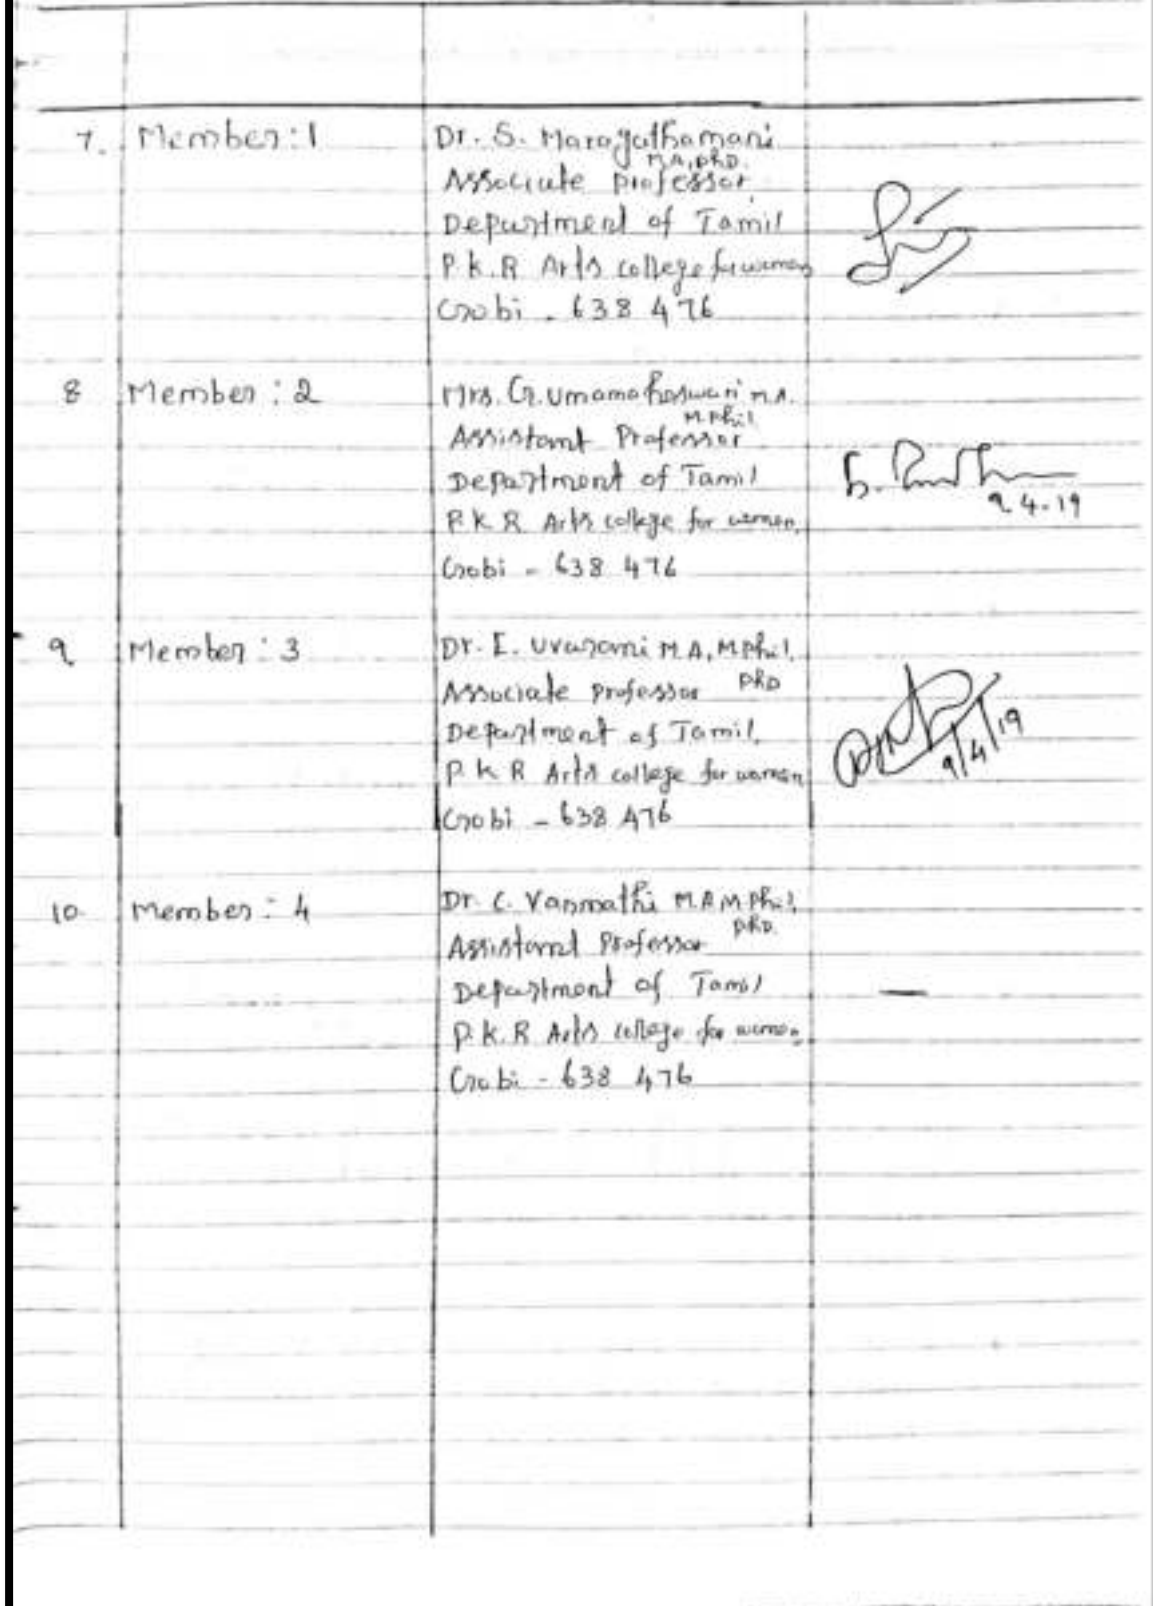 7. Member: 1 Dr. S. Maragathamani
M.A, PhD.
Associate Professor
Department of Tamil
P.K.R Arts college for women
Gobi - 638 476
8 Member: 2 Mrs. G. Umamaheswari M.A.
M.Phil
Assistant Professor
Department of Tamil
P.K.R Arts college for women,
Gobi - 638 476
9.4.19
9 Member: 3 Dr. E. Uvarani M.A, M.Phil,
Associate Professor PhD
Department of Tamil,
P.K.R Arts college for women
Gobi - 638 476
9/4/19
10. Member: 4 Dr. C. Vanmathi M.A M.Phil,
Assistant Professor PhD.
Department of Tamil
P.K.R Arts college for women,
Gobi - 638 476